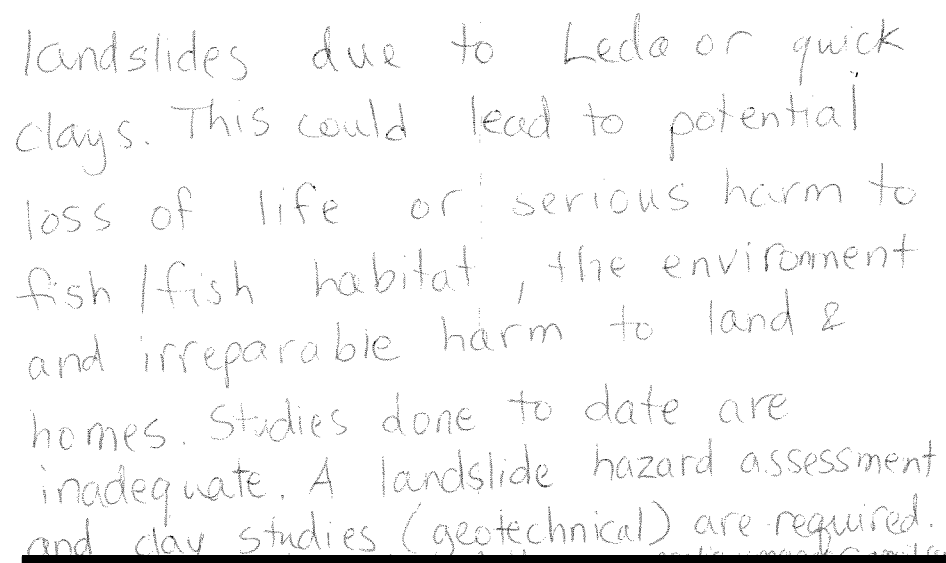 landslides due to Leda or quick
clays. This could lead to potential
loss of life or serious harm to
fish/fish habitat, the environment
and irreparable harm to land &
homes. Studies done to date are
inadequate. A landslide hazard assessment
and clay studies (geotechnical) are required.